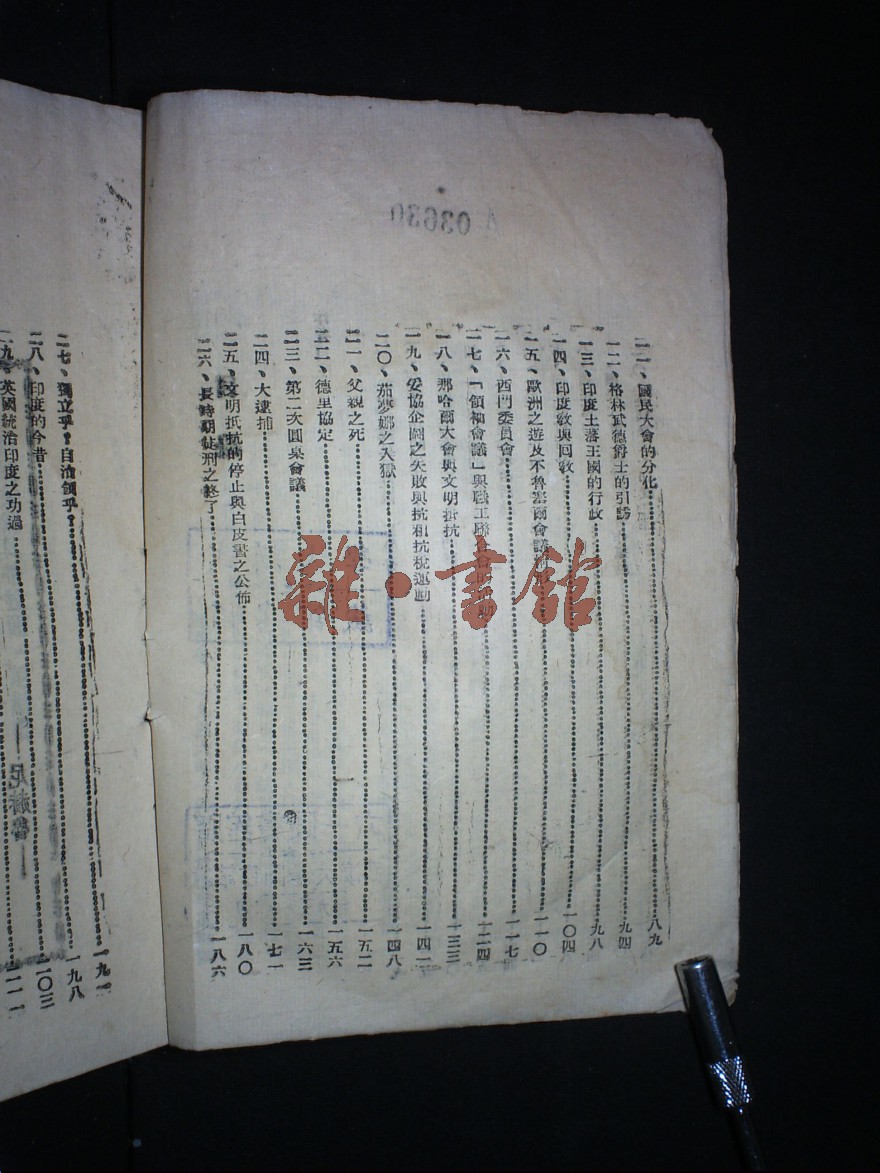 A 03630
一一、國民大會的分化 八九
一二、格林武德爵士的引誘 九四
一三、印度土落王國的行政 九八
一四、印度教與回教 一〇四
一五、歐洲之遊及不魯塞爾會議 一一〇
一六、西門委員會 一一七
一七、「領袖會議」與職工聯合會 一二四
一八、那哈爾大會與文明抵抗 一三三
一九、妥協企圖之失敗與抗租抗稅運動 一四一
二〇、茄夢娜之入獄 一四八
二一、父親之死 一五二
二二、德里協定 一五六
二三、第二次圓桌會議 一六三
二四、大逮捕 一七一
二五、文明抵抗的停止與白皮書之公佈 一八〇
二六、長時期徒刑之終了 一八六
二七、獨立乎？自治領乎？ 一九一
二八、印度的今昔 一九八
二九、英國統治印度之功過 二〇三
二一一
雜·書館